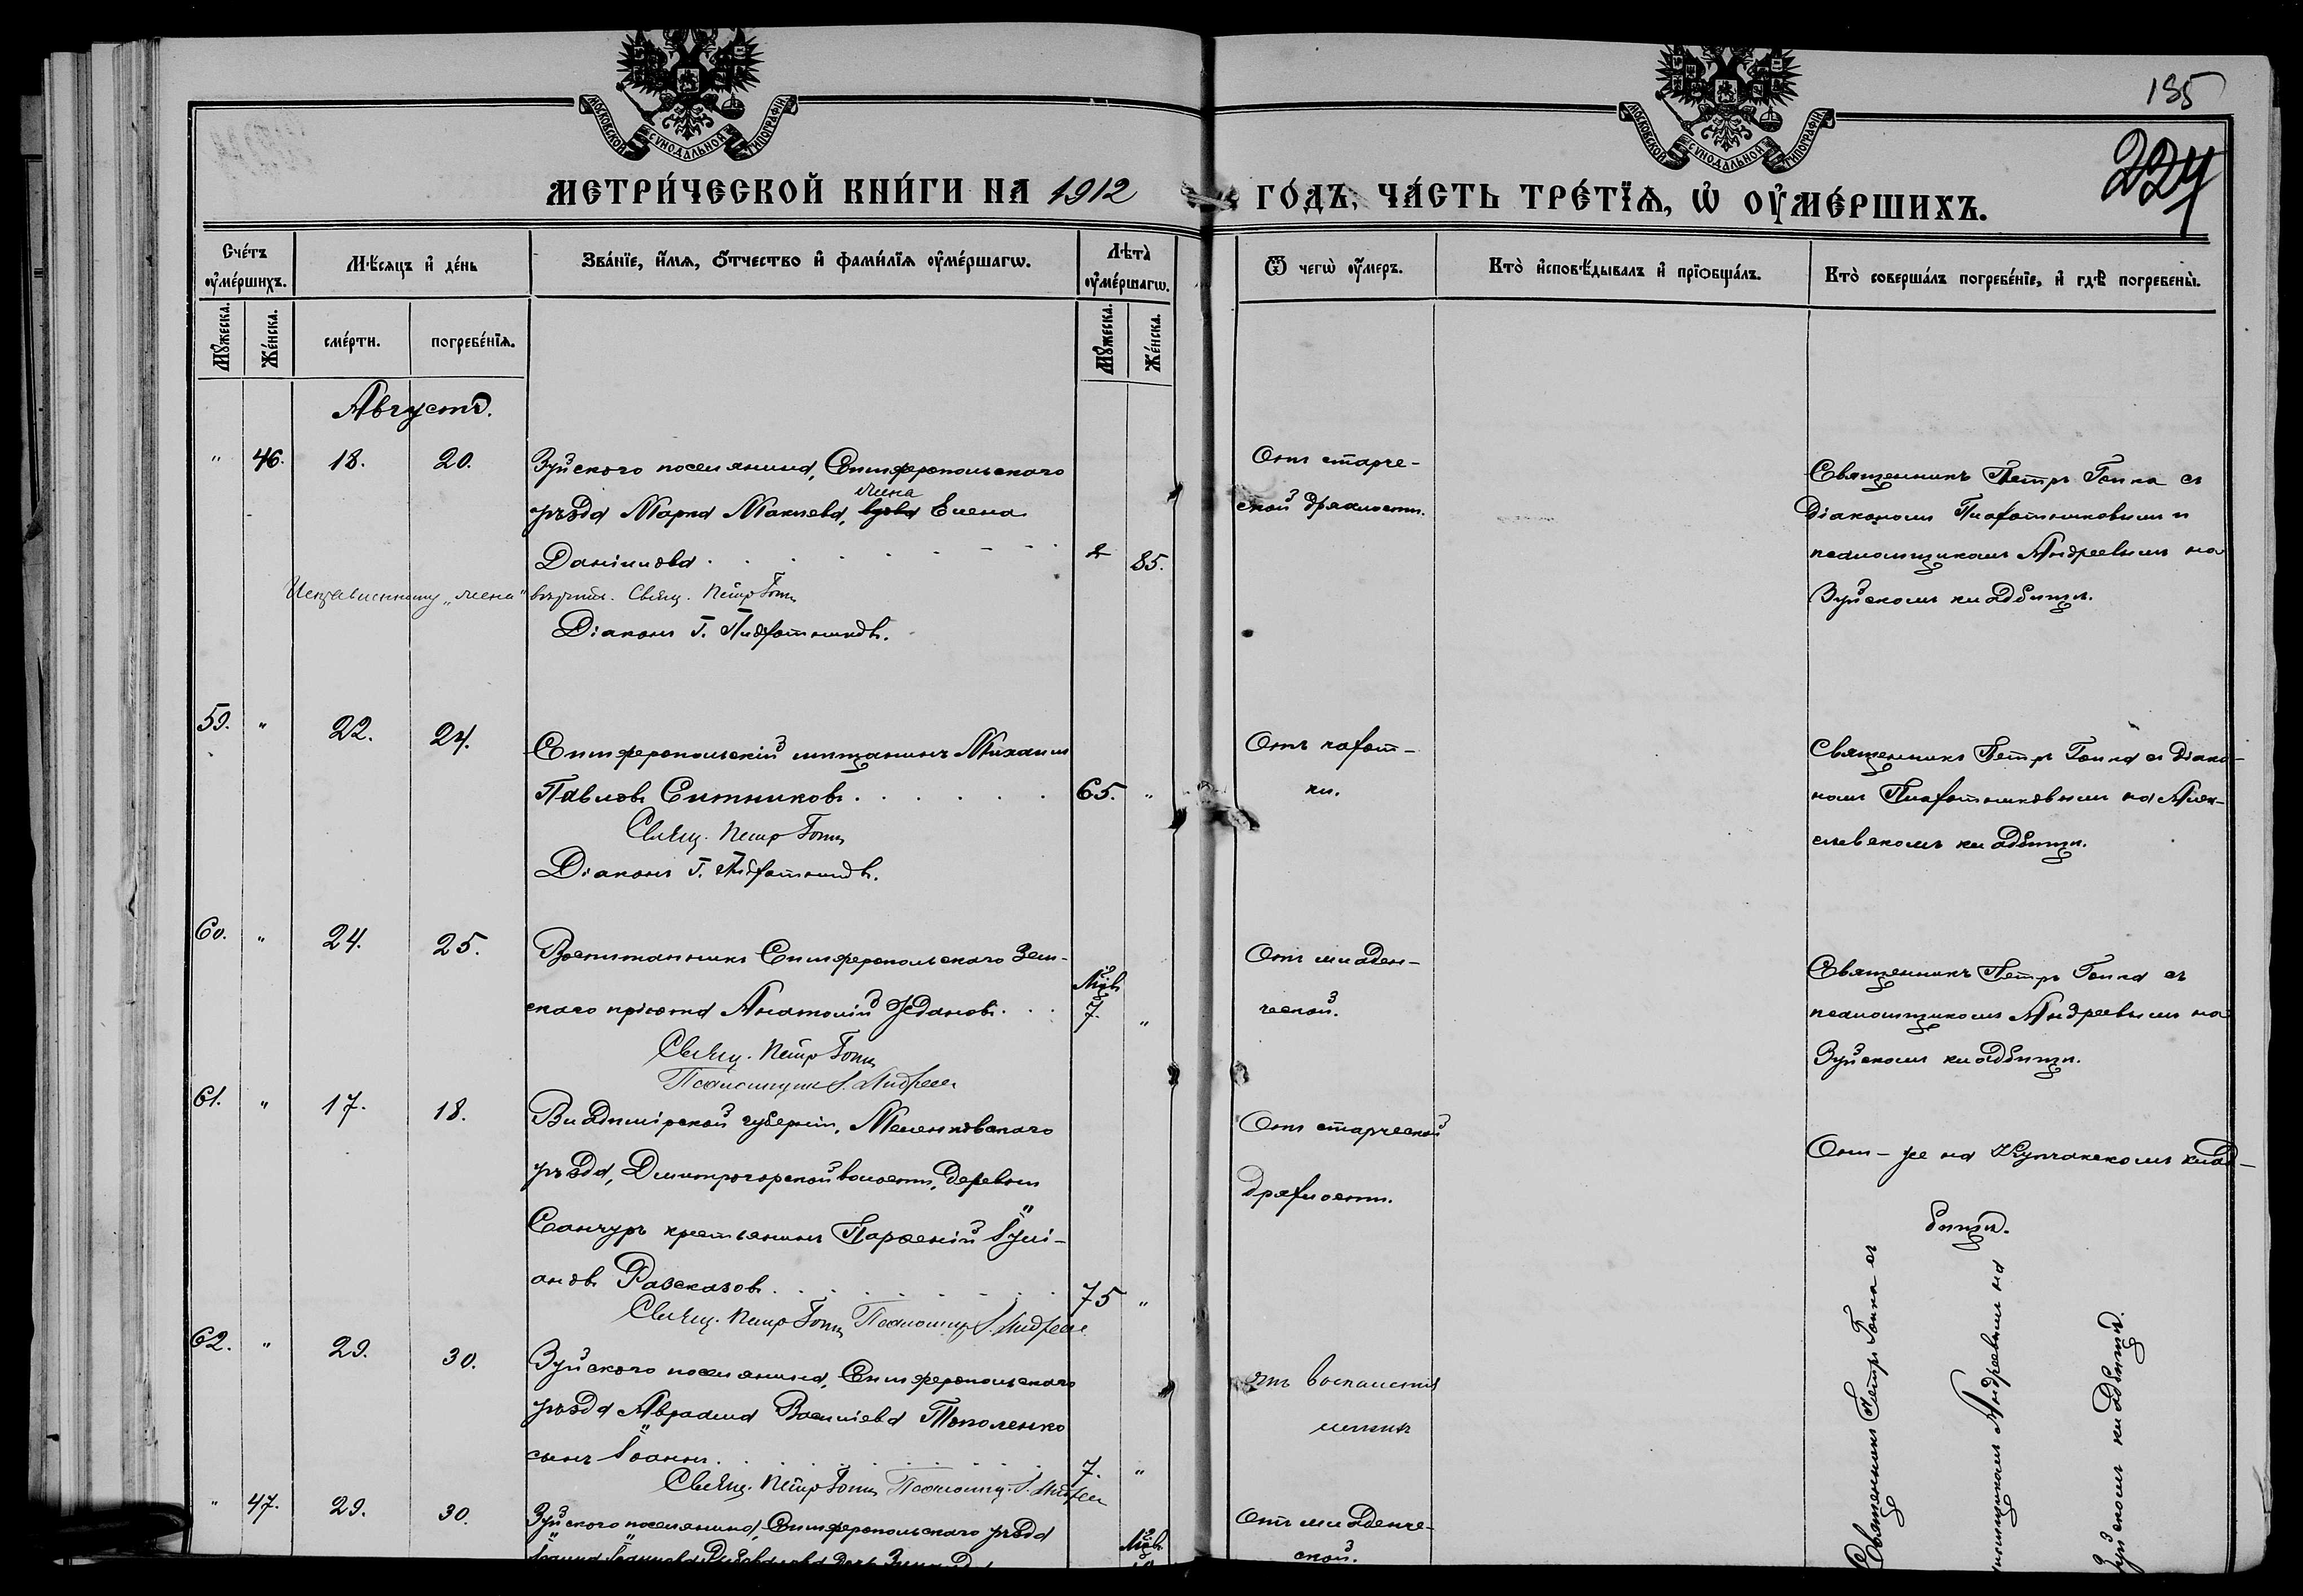 МОСКОВСКОЙ СѴНОДАЛЬНОЙ ТИПОГРАФІИ
МОСКОВСКОЙ СѴНОДАЛЬНОЙ ТИПОГРАФІИ
185
224
МЕТРИ́ЧЕСКОЙ КНИ́ГИ НА 1912
ГО́ДЪ, ЧА́СТЬ ТРЕ́ТЇѦ, Ѡ҆ ОУ҆МЕ́РШИХЪ.
Сче́тъ оу҆ме́ршихъ.
Мѣ́сѧцъ и҆ де́нь
Зва́нїе, и҆́мѧ, ѻ҆́тчество и҆ фами́лїѧ оу҆ме́ршагѡ.
Лѣта̀ оу҆ме́ршагѡ.
Ѿ чегѡ̀ оу҆́меръ.
Кто̀ и҆сповѣ́дывалъ и҆ прїѻбща́лъ.
Кто̀ соверша́лъ погребе́нїе, и҆ гдѣ̀ погребены̀.
Мꙋ́жеска.
Же́нска.
сме́рти.
погребе́нїѧ.
Мꙋ́жеска.
Же́нска.
Августъ.
" 46. 18. 20.
Зуйского поселянина, Симферопольскаго
жена
уѣзда Марка Макиева, вдова Елена
Даніилова . . . . . . . 85.
Исправленному „жена" вѣрить. Свящ. Петръ Гопка
Діаконъ Г. Плахотниковъ.
Отъ старче-
ской дряхлости.
Священникъ Петръ Гопка съ
Діакономъ Плахотниковымъ и
псаломщикомъ Андреевымъ на
Зуйскомъ кладбищѣ.
59. " 22. 24.
Симферопольскій мѣщанинъ Михаилъ
Павловъ Ситниковъ . . . . . . 65. "
Свящ. Петръ Гопка
Діаконъ Г. Плахотниковъ.
Отъ чахот-
ки.
Священникъ Петръ Гопка съ Діако-
номъ Плахотниковымъ на
кладбищѣ.
60. " 24. 25.
Воспитанникъ Симферопольскаго Зем-
скаго пріюта Анатолій Ждановъ . . . Мѣс. 7. "
Свящ. Петръ Гопка
Псаломщикъ І. Андреевъ
Отъ младен-
ческой.
Священникъ Петръ Гопка съ
псаломщикомъ Андреевымъ на
Зуйскомъ кладбищѣ.
61. " 17. 18.
Владимірской губерніи, Меленковскаго
уѣзда, Дмитрогорской волости, деревни
Санчуръ крестьянинъ Парѳеній Іулі-
ановъ Разсказовъ . . . . . . . 75 "
Свящ. Петръ Гопка Псаломщ. І. Андреевъ
Отъ старческой
дряхлости.
Онъ-же на кладбищѣ.
62. " 29. 30.
Зуйского поселянина, Симферопольскаго
уѣзда Авраама Василіева Тополенко
сынъ Іоаннъ . . . . . . . 7. "
Свящ. Петръ Гопка Псаломщ. І. Андреевъ
отъ воспаленія
легкихъ
Священникъ Петръ Гопка съ
псаломщикомъ Андреевымъ на
Зуйскомъ кладбищѣ.
" 47. 29. 30.
Зуйского поселянина, Симферопольскаго уѣзда
Мѣс.
Отъ младенче-
ской.